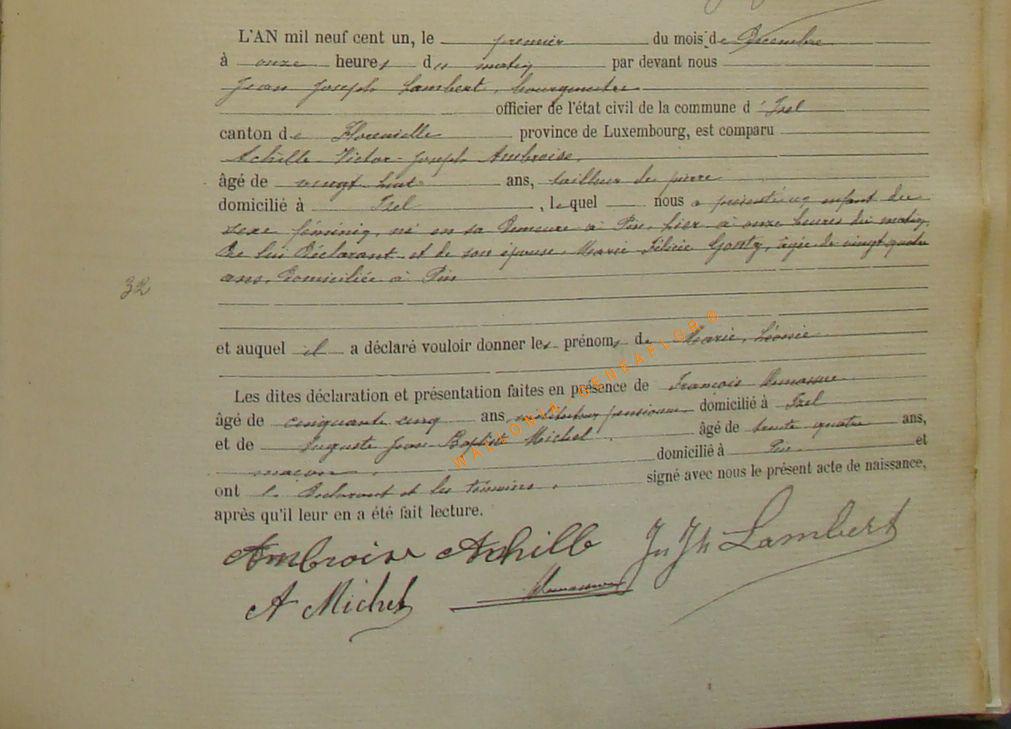 L'AN mil neuf cent un, le premier du mois de Décembre
à onze heures du matin par devant nous
Jean Joseph Lambert, bourgmestre
officier de l'état civil de la commune d'Izel
canton de Florenville province de Luxembourg, est comparu
Achille-Victor-Joseph Ambroise,
âgé de vingt huit ans, tailleur de pierre
domicilié à Izel, lequel nous a présenté un enfant du
sexe féminin, né en sa demeure à Pin, hier à onze heures du matin,
de lui Déclarant et de son épouse Marie Félicie, âgée de vingt quatre
ans, domiciliée à Pin
32
et auquel il a déclaré vouloir donner les prénoms de Marie, Léonie
Les dites déclaration et présentation faites en présence de François
âgé de cinquante cinq ans pensionné domicilié à Izel
et de Auguste Jean-Baptiste Michel, âgé de trente quatre ans,
maçon, domicilié à Pin et
ont le Déclarant et les témoins, signé avec nous le présent acte de naissance,
après qu'il leur en a été fait lecture.
Ambroise Achille Jn Jh Lambert
A Michel
WALLONIA GENEAFLOR©